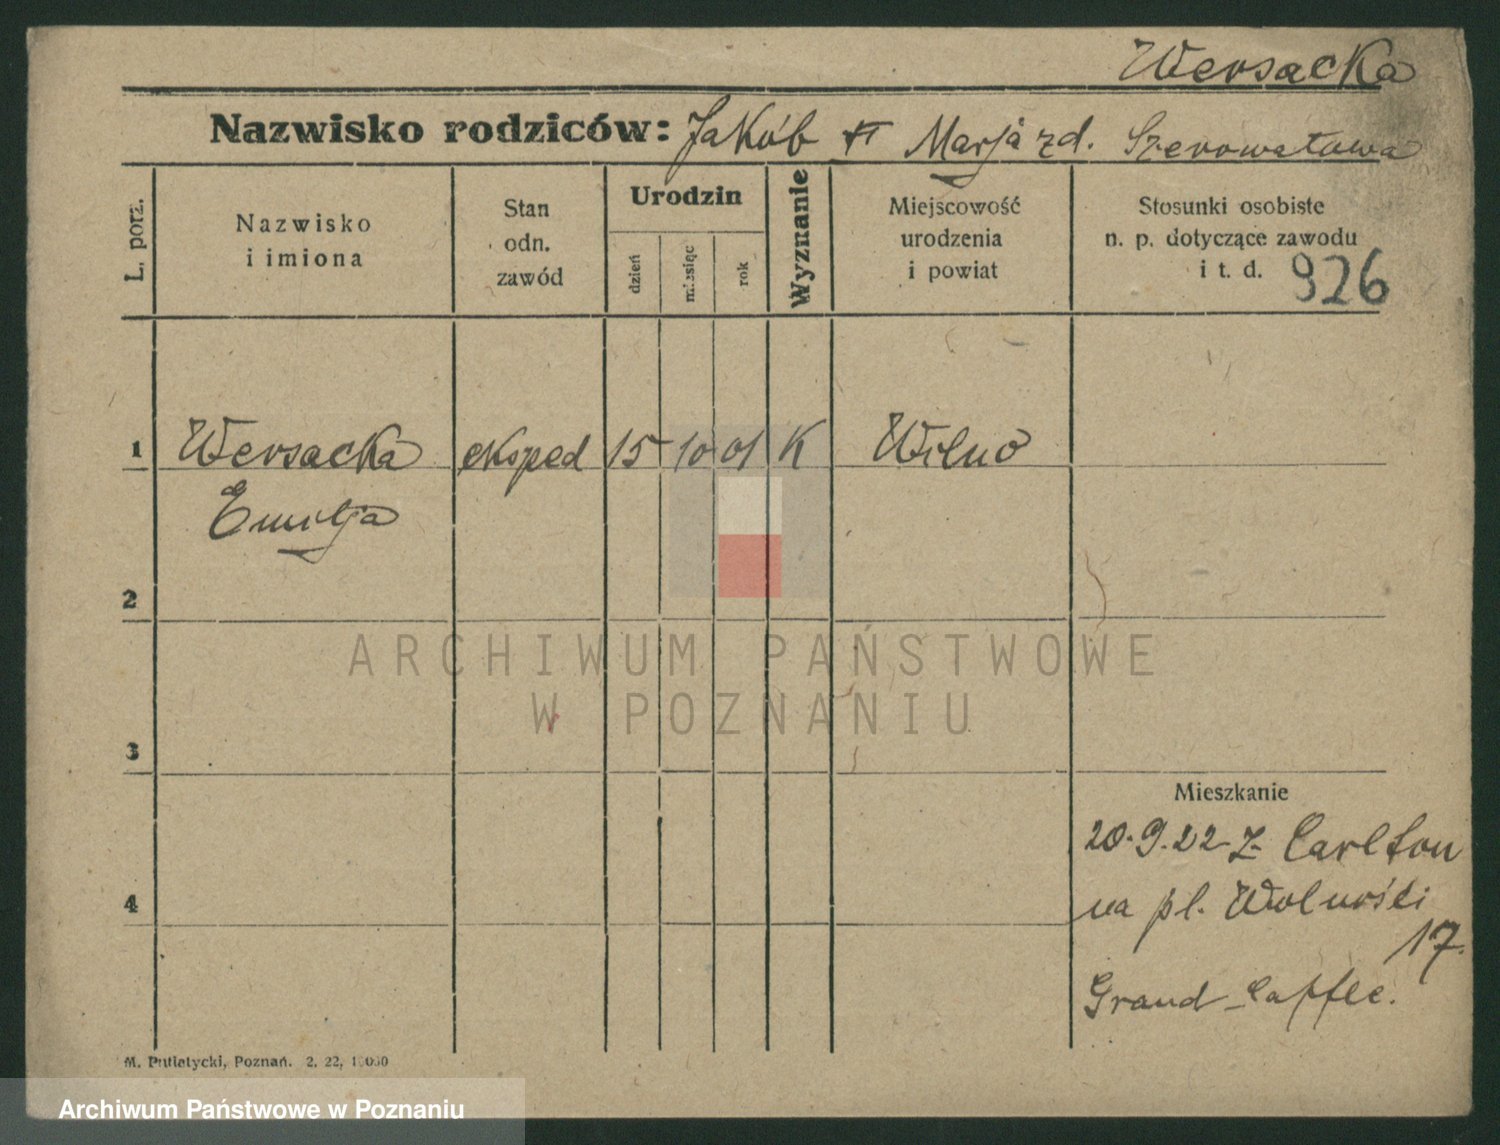 Wersacka
Nazwisko rodziców: Jakób Marja zd.
L. porz.
Nazwisko
i imiona
Stan
odn.
zawód
Urodzin
dzień
miesiąc
rok
Wyznanie
Miejscowość
urodzenia
i powiat
Stosunki osobiste
n. p. dotyczące zawodu
i t. d. 926
1 Wersacka eksped 15 10 01 K Wilno
Emilja
2
ARCHIWUM PAŃSTWOWE
W POZNANIU
3
Mieszkanie
20.9.22 z Carlton
4
na pl. Wolności
17.
Grand-Caffee.
M. Putiatycki, Poznań. 2. 22,
Archiwum Państwowe w Poznaniu